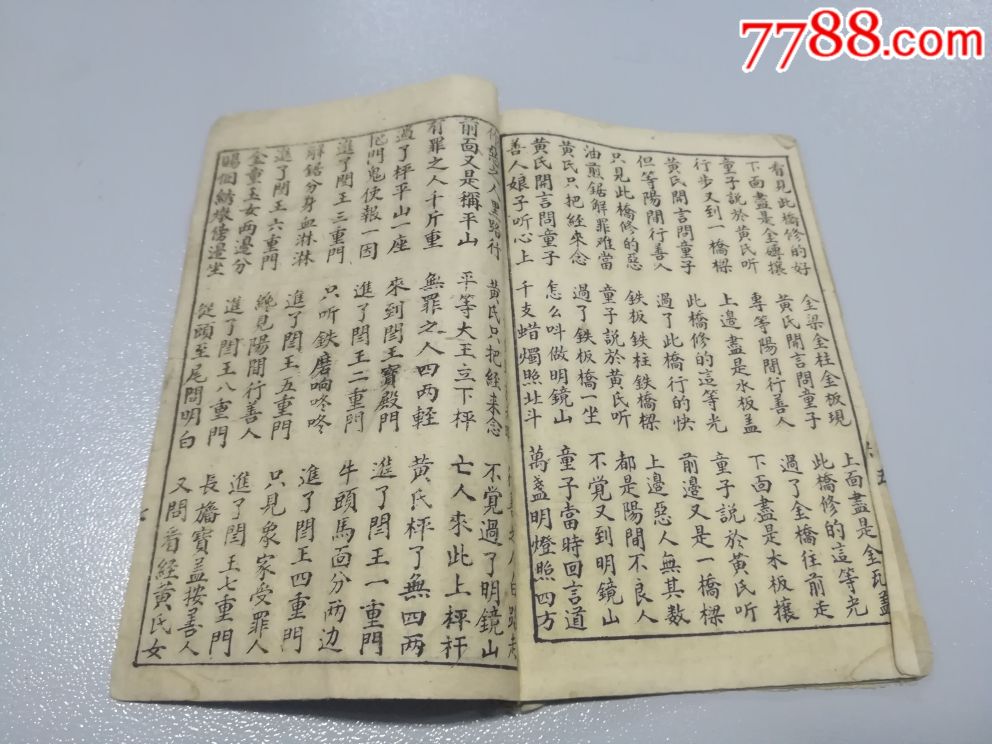 看見此橋修的好 金梁金柱金板現 上面盡是金瓦蓋
下面盡是金磚攘 黃氏開言問童子 此橋修的這等光
童子說於黃氏听 專等陽間行善人 過了金橋往前走
行步又到一橋樑 上邊盡是水板盖 下面盡是木板攘
黃氏開言問童子 此橋修的這等光 童子說於黃氏听
但等陽間行善人 過了此橋行的快 前邊又是一橋樑
只見此橋修的惡 鉄板鉄柱鉄橋樑 上邊惡人無其数
油煎鋸解罪难當 童子說於黃氏听 都是陽間不良人
黃氏只把經來念 過了鉄板橋一坐 不覚又到明鏡山
黃氏開言問童子 怎么叫做明鏡山 童子當時回言道
善人娘子听心上 千支蜡燭照北斗 萬盞明燈照四方
人黑路行 黃氏只把經来念 不覚過了明鏡山
前面又是稱平山 平等大王立下枰 亡人來此上枰杆
有罪之人千斤重 無罪之人四两輕 黃氏枰了無四两
過了枰平山一座 來到閆王寶殿門 進了閆王一重門
把門鬼使報一因 進了閆王二重門 牛頭馬面分两边
進了閆王三重門 只听鉄磨响咚咚 進了閆王四重門
解鋸分身血淋淋 進了閆王五重門 只見衆家受罪人
進了閆王六重門 纔見陽間行善人 進了閆王七重門
金童玉女两邊分 進了閆王八重門 長旛寶盖接善人
賜個綉墩傍邊坐 從頭至尾問明白 又問看經黃氏女
7788.com